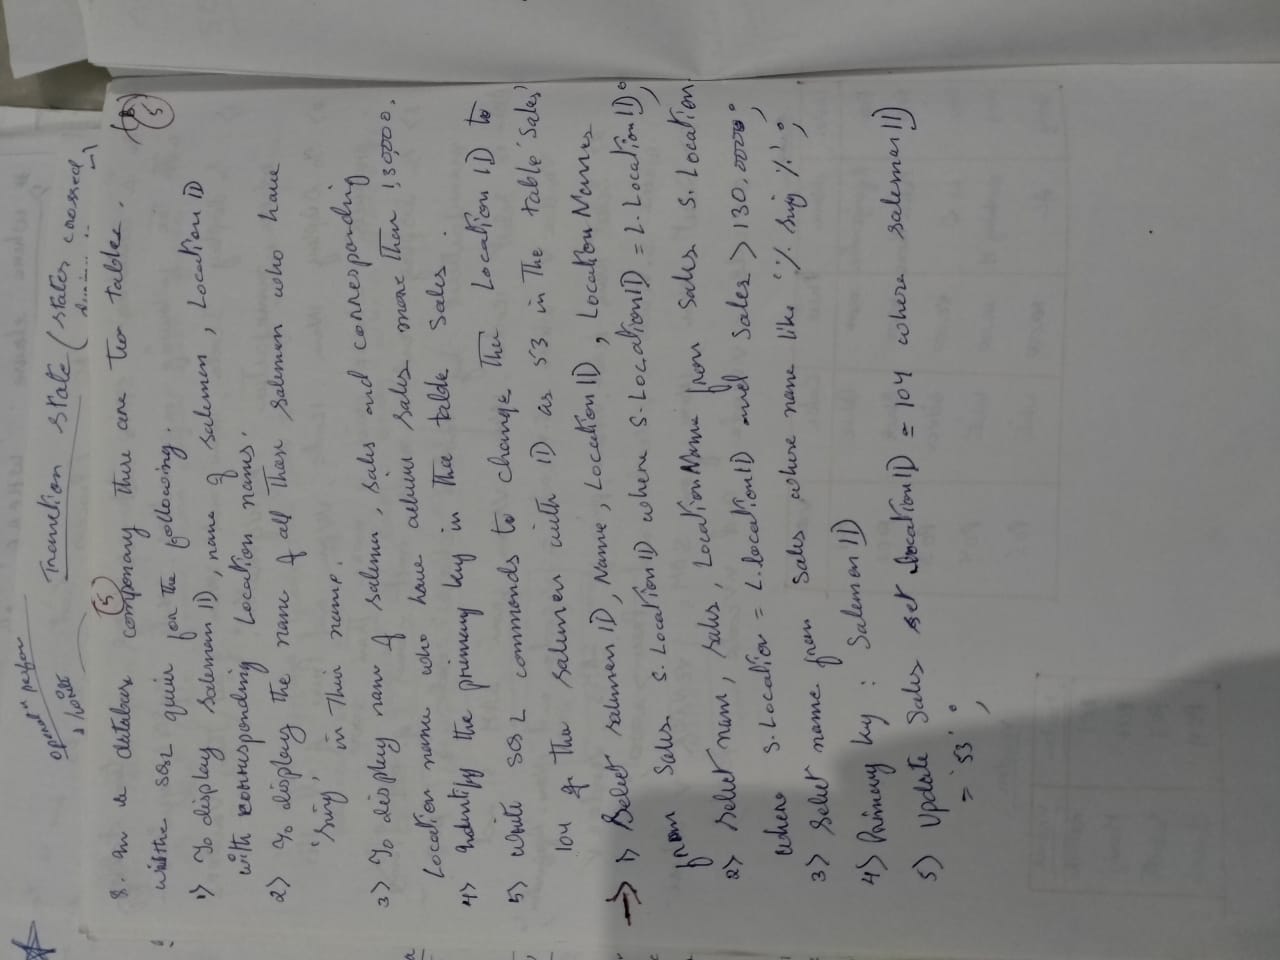 operal" perfor
& write
Tranction state (states crossed
8. In a database componany there are two tables.
5
5
with the SQL quier for the following.
1) To display Saleman ID, name of salemen, Location ID
with corrusponding Location names.
2) To display the name of all Those Salemen who have
'sing' in Their name.
3) To display name of salemen, sales and corresponding
Location name who have achieve sales more Than 1,30,000.
4) Indentify the primary key in The table Sales.
5) Write SQL commonds to change The Location ID to
104 of The salemen with ID as 53 in The table 'Sales'
→ 1) Select salemen ID, Name, Location ID, Location Names
from Sales S. Location ID where S.LocationID = L.LocationID;
2) Select nam, sales, LocationName from Sales S. Location
where S.Location = L.locationID and Sales > 130,0000;
3) Select name from Sales where name like '% sing %';
4) Primary key : Salemen ID
5) Update Sales set locationID = 104 where salemenID
= '53' ;